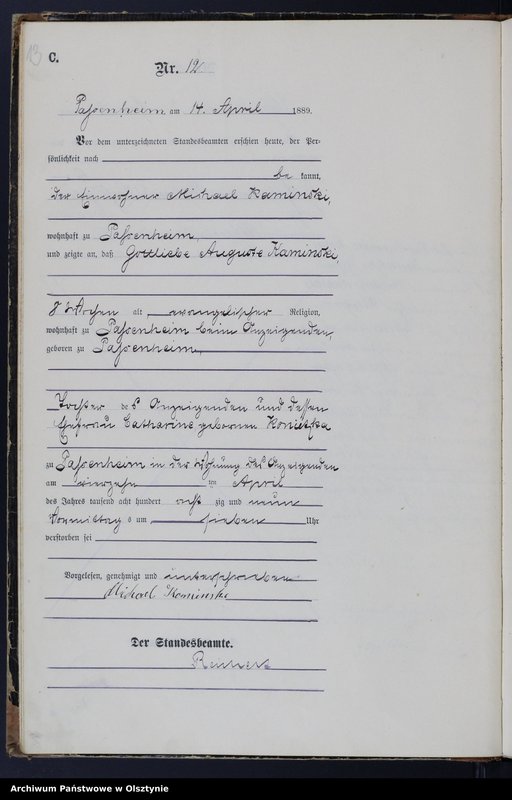 13
C.
Nr. 12.
Passenheim am 14. April 1889.
Vor dem unterzeichneten Standesbeamten erschien heute, der Per-
sönlichkeit nach
be kannt,
der Einwohner Michael Kaminski,
wohnhaft zu Passenheim,
und zeigte an, daß Gottliebe Auguste Kaminski,
Wochen alt evangelischer Religion,
wohnhaft zu Passenheim beim Anzeigenden,
geboren zu Passenheim,
Tochter des Anzeigenden und dessen
Ehefrau Catharine geborenen
zu Passenheim in der Wohnung des Anzeigenden
am vierzehn ten April
des Jahres tausend acht hundert acht zig und neun
Vormittag s um sieben Uhr
verstorben sei
Vorgelesen, genehmigt und unterschrieben
Michael Kaminski
Der Standesbeamte.
Archiwum Państwowe w Olsztynie